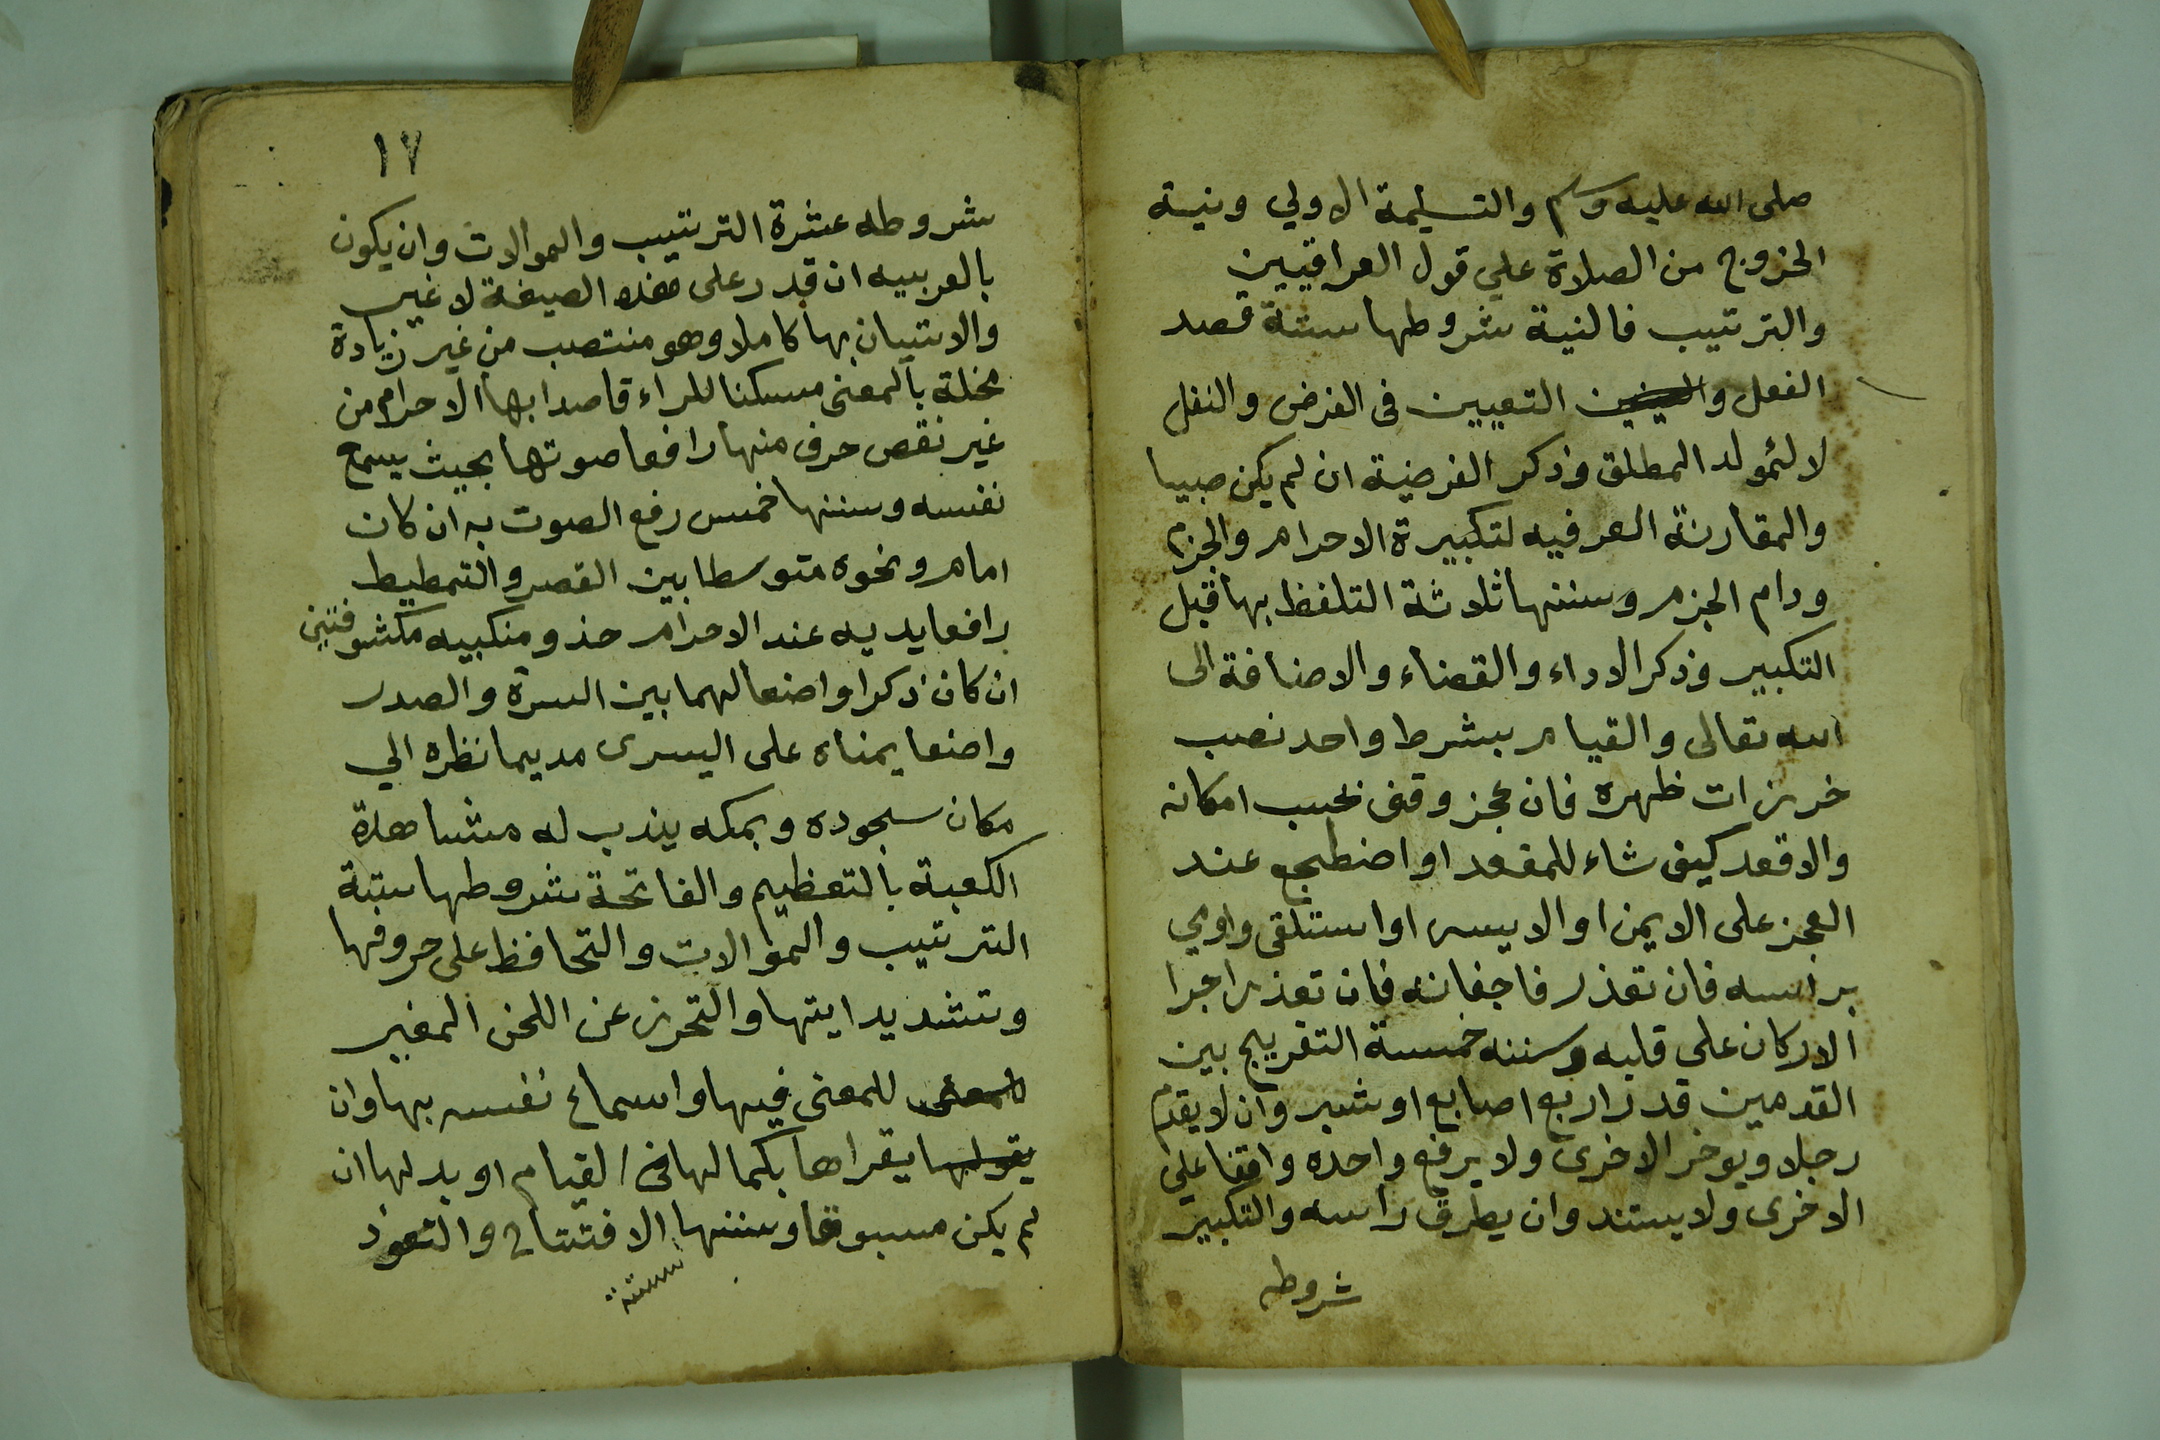 صلى الله عليه وسلم والتسليمة الاولي ونية
الخروج من الصلاة علي قول العراقيين
والترتيب فالنية شروطها ستة قصد
الفعل و التعيين فى الفرض والنفل
لا المطلق وذكر الفرضية ان لم يكن صبيا
والمقارنة العرفيه لتكبيرة الاحرام والجزم
ودام الجزم وسننها ثلاثة التلفظ بها قبل
التكبير وذكر الاداء والقضاء والاضافة الى
الله تعالى والقيام بشرط واحد نصب
خرزات ظهره فان عجز وقف بحسب امكانه
والا قعد كيف شاء للمقعد او اضطجع عند
العجز على الايمن او الايسر او استلقى واومي
براسه فان تعذر فاجفانه فان تعذر اجرا
الاركان على قلبه وسننه خمسة التفريج بين
القدمين قدر اربع اصابع او شبر وان لا يقدم
رجلا ويوخر الاخرى ولا يرفع واحده واقفا على
الاخرى ولا يستند وان يطرق راسه والتكبير
شروطه
١٧
شروطه عشرة الترتيب والموالات وان يكون
بالعربيه ان قدر على هذه الصيغة لا غير
والاتيان بها كاملا وهو منتصب من غير زيادة
مخلة بالمعنى مسكنا للراء قاصدا بها الاحرام من
غير نقص حرف منها رافعا صوتها بحيث يسمع
نفسه وسننها خمس رفع الصوت به ان كان
امام ونحوه متوسطا بين القصر والتمطيط
رافعا يديه عند الاحرام حذو منكبيه مكشوفتين
ان كان ذكرا واضعا لهما بين السرة والصدر
واضعا يمناه على اليسرى مديما نظره الي
مكان سجوده وبمكه يندب له مشاهدة
الكعبة بالتعظيم والفاتحة شروطها ستة
الترتيب والموالات والتحافظ على حروفها
وتشديد ايتها والتحرز عن اللحن المغير
للمعنى فيها واسماع نفسه بها وان
يقراها بكمالها فى القيام او بدلها ان
لم يكن مسبوقا وسننها الافتتاح والتعوذ
ستة